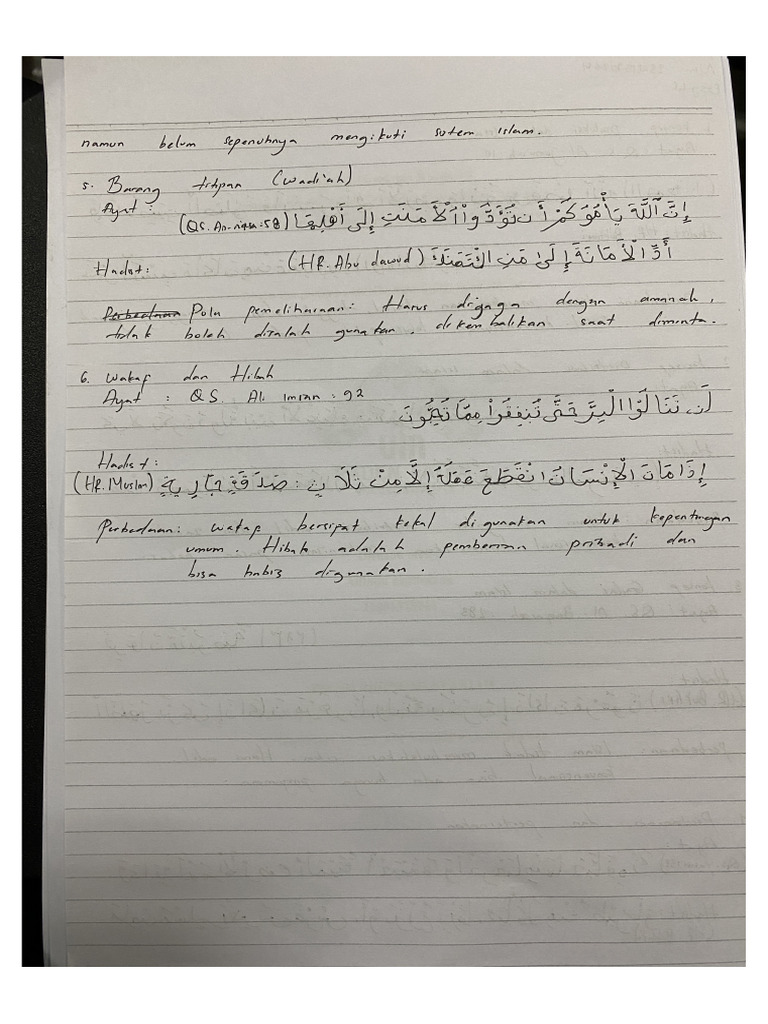 namun belum sepenuhnya mengikuti sistem islam.
5. Barang titipan (wadi'ah)
Ayat : إِنَّ ٱللَّهَ يَأْمُرُكُمْ أَن تُؤَدُّوا۟ ٱلْأَمَـٰنَـٰتِ إِلَىٰ أَهْلِهَا (QS. An-nisa : 58)
Hadist : أَدِّ الْأَمَانَةَ إِلَىٰ مَنِ ائْتَمَنَكَ (HR. Abu dawud)
Perbedaan Pola pemeliharaan : Harus dijaga dengan amanah,
tidak boleh disalah gunakan, dikembalikan saat diminta.
6. Wakaf dan Hibah
Ayat : QS. Al. Imran : 92
لَن تَنَالُوا الْبِرَّ حَتَّىٰ تُنفِقُوا۟ مِمَّا تُحِبُّونَ
Hadist :
إِذَا مَاتَ الْإِنْسَانُ انْقَطَعَ عَمَلُهُ إِلَّا مِنْ ثَلَاثٍ : صَدَقَةٍ جَارِيَةٍ (HR. Muslim)
Perbedaan : wakaf bersipat kekal digunakan untuk kepentingan
umum. Hibah adalah pemberian pribadi dan
bisa habis digunakan.